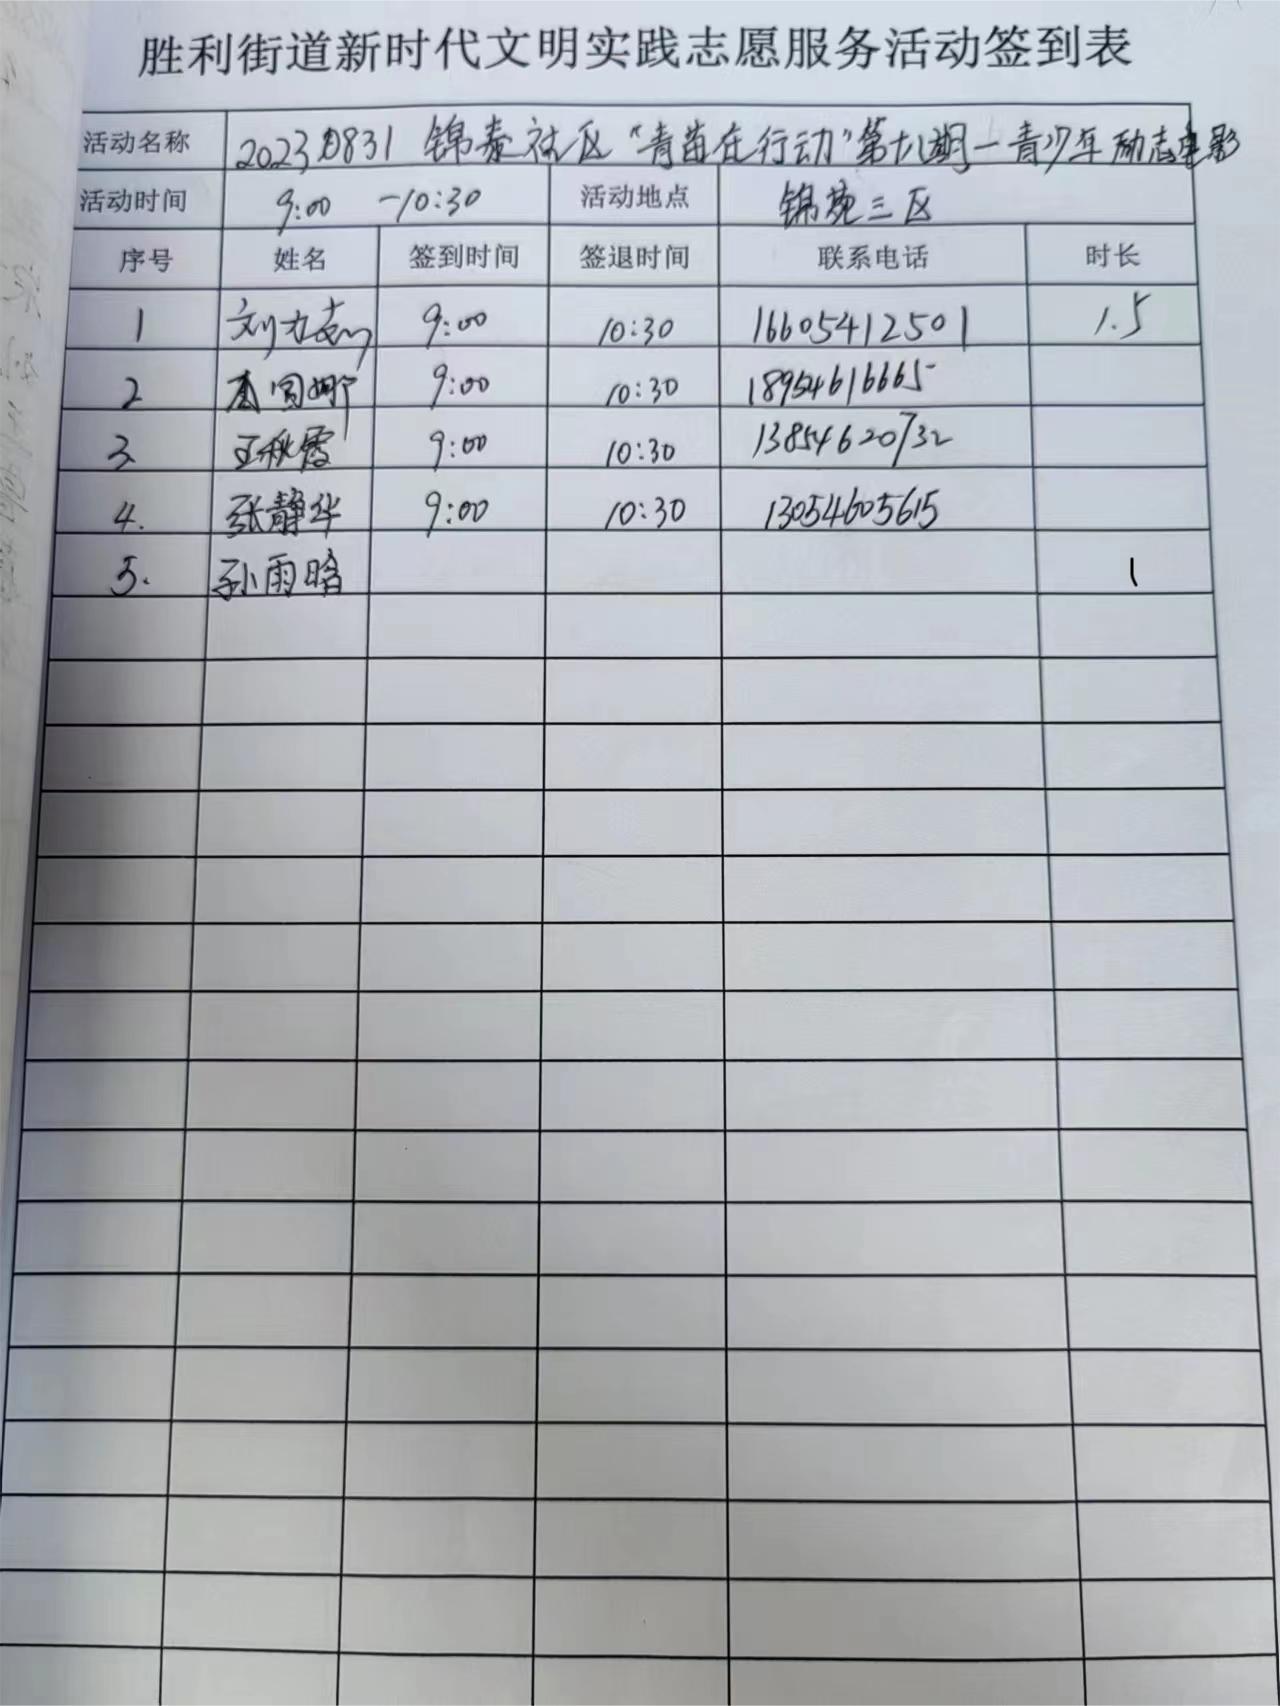 胜利街道新时代文明实践志愿服务活动签到表
活动名称 20230831 锦泰社区“青苗在行动”第十八期—青少年励志电影
活动时间 9:00 -10:30 活动地点 锦苑三区
序号 姓名 签到时间 签退时间 联系电话 时长
1 刘 9:00 10:30 16605412501 1.5
2 9:00 10:30 18954616665
3. 王秋霞 9:00 10:30 13854620732
4. 张静华 9:00 10:30 13054605615
5. 孙雨晗 1